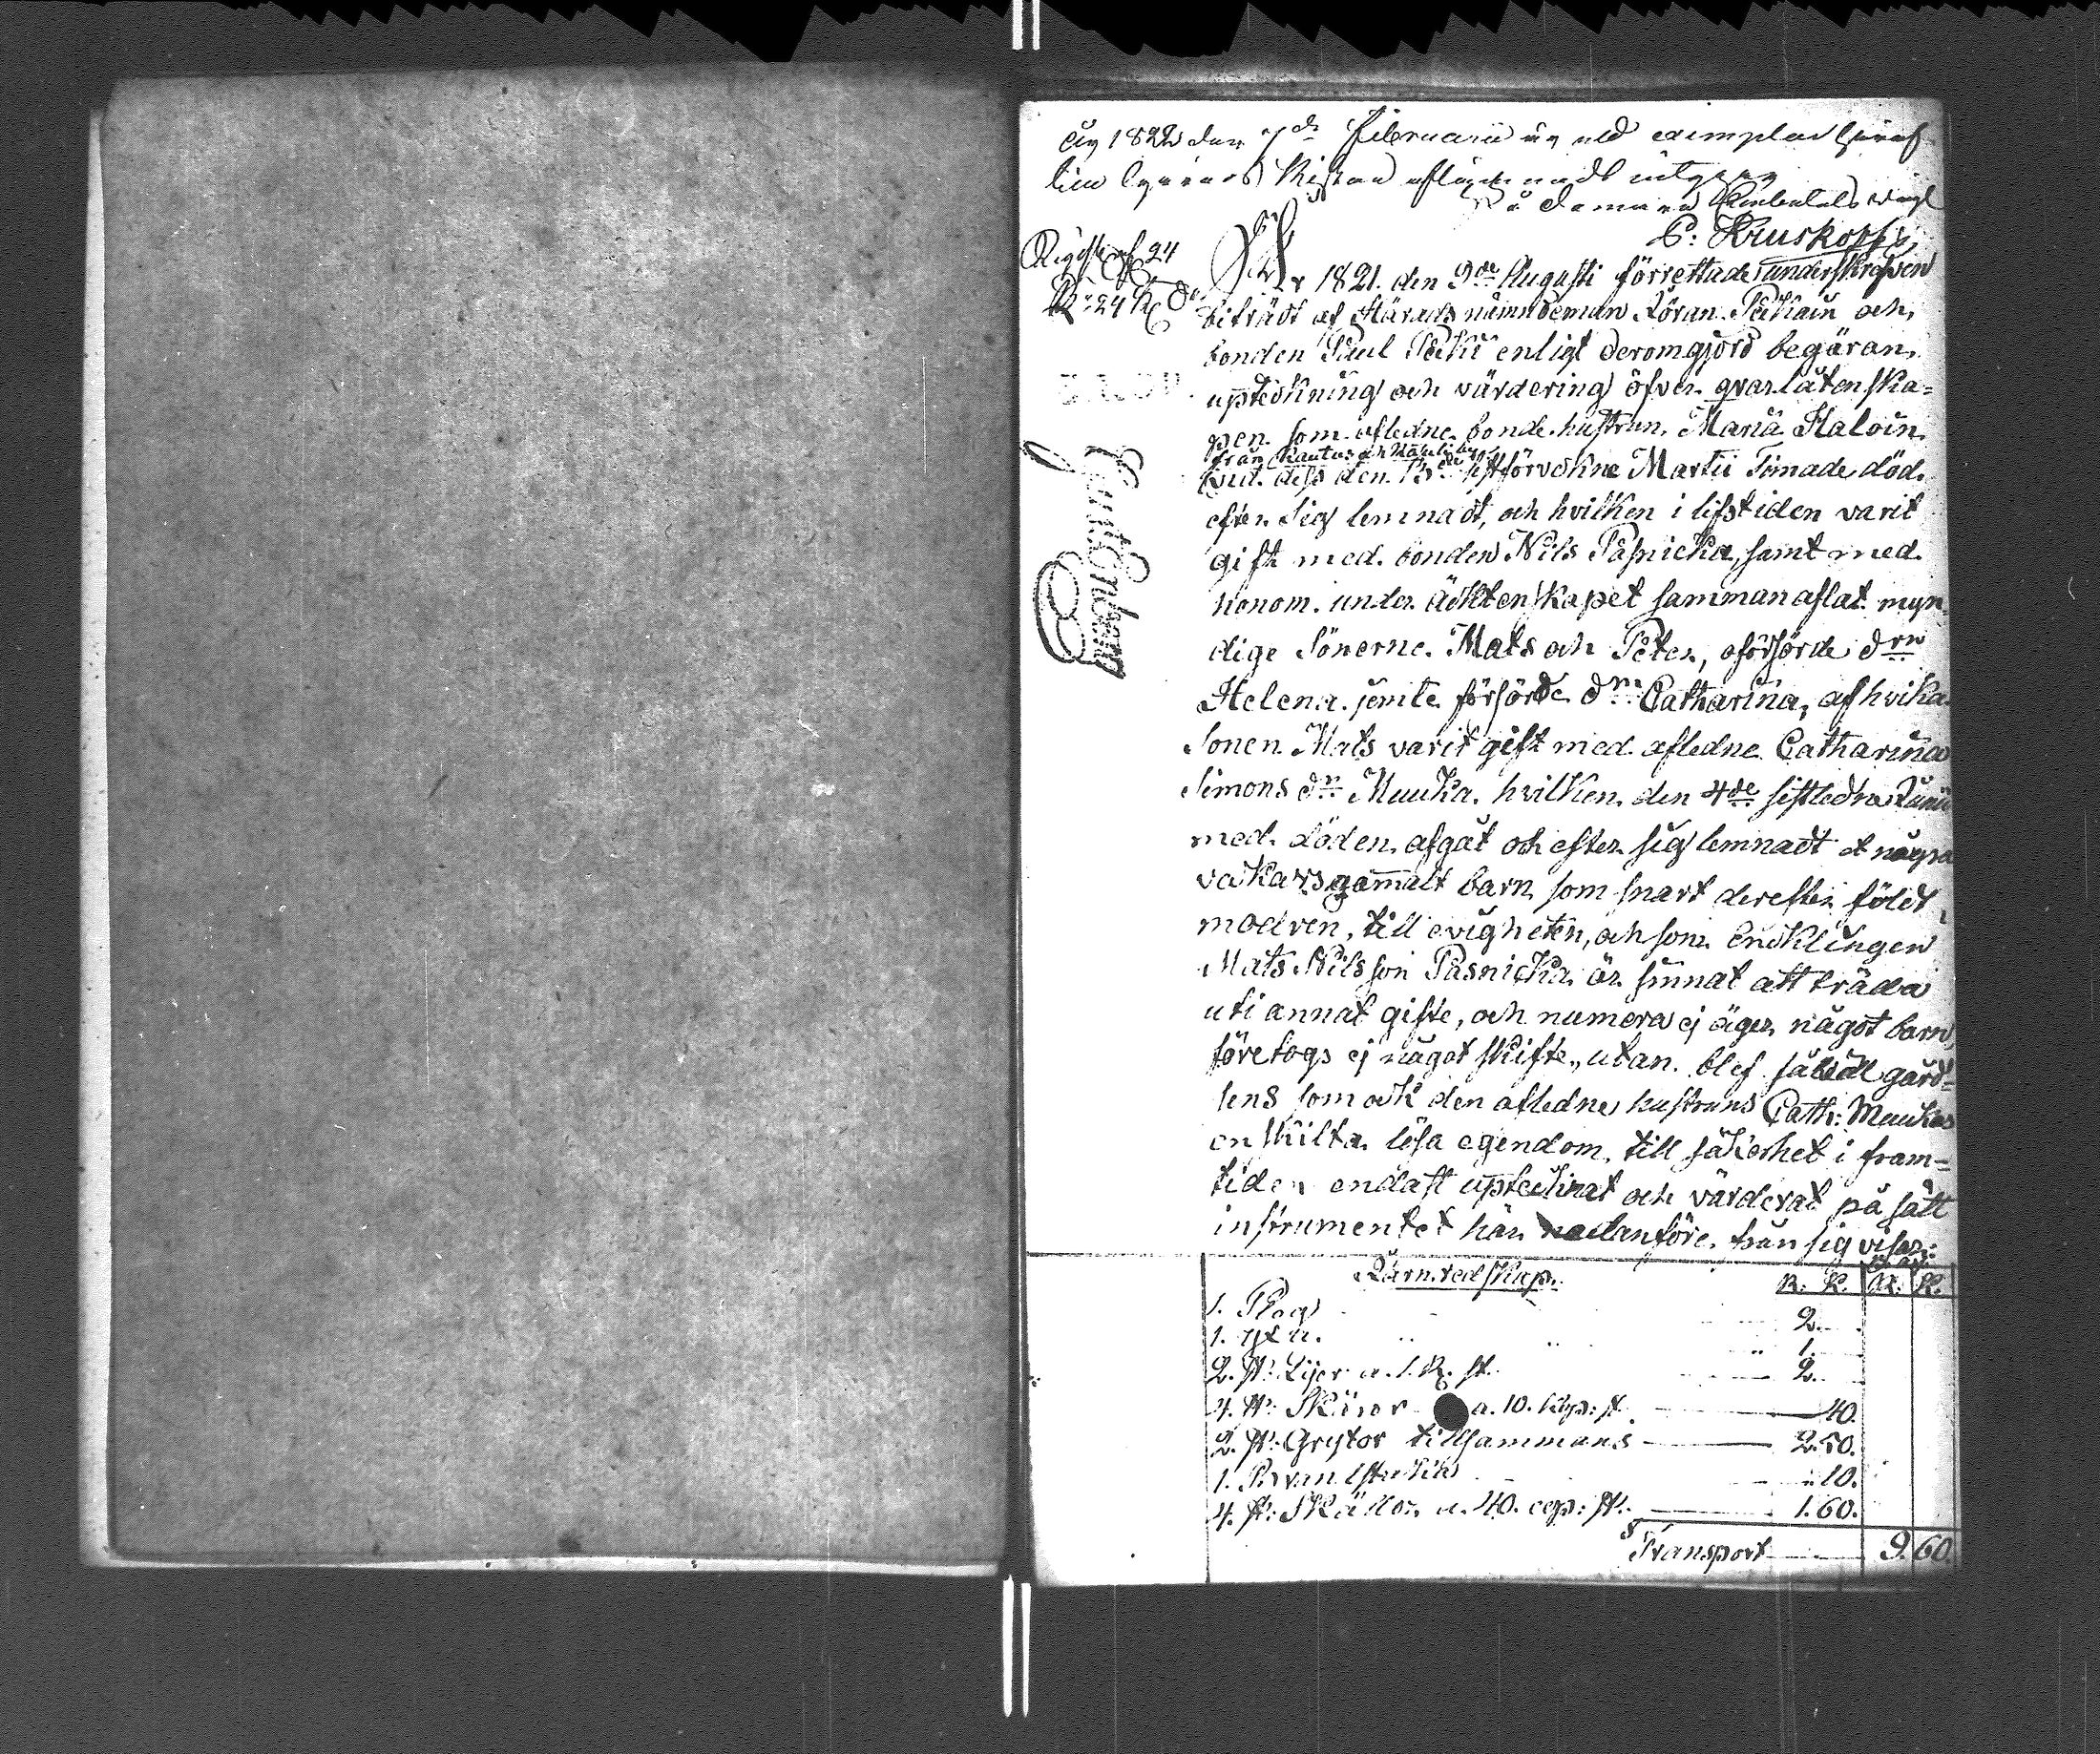 1822 den 7de Februarii exemplar
C: Kruskopf
År 1821. den 9de Augusti förrettade underskrefven
biträdt af Härads nämndeman Jöran och
bonden Paul enligt deromgjord begäran,
upteckning och värdering öfver qvarlåtenska=
pen som afledne bonde hustrun Maria Haloin
från
den 13de Martii Timade död
efter sig lemnadt, och hvilken i lifstiden varit
gift med bonden Nils Pasnicka, samt med
honom under ächtenskapet sammanaflat myn
dige Sönerne Mats och Peter, oförsörde drn
Helena jemte försörde drn Catharina, af hvika
Sonen Mats varit gift med afledne Catharina
Simons dr Muuka, hvilken den 4de sistledne Junii
med döden afgåt och efter sig lemnadt et några
vakars gamalt barn som snart derefter földt
modren, till evigheten, och som Encklingen
Mats Nilsson Pasnicka är sinnat att träda
uti annat gifte, och numera ej äger något barn
företogs ej något skifte, utan blef såväl gård=
sens som ock den afledne hustruns Cath: Muukas
enskilta lösa egendom, till säkerhet i fram=
tiden endast upteknat och värderat på sätt
instrumentet här nedanföre, från sig viser:
Järnredskap. R. K. R. K.
1. Plog 2.
1. yxa 1.
2. st: Lijer a. 1. R. st. 2.
4. st: Skäror a. 10. kop: st 40.
2. st: Grytor tillsammans 2.50.
1. 10.
4. st: a. 40. cop: st. 1.60.
Transport 9. 60.